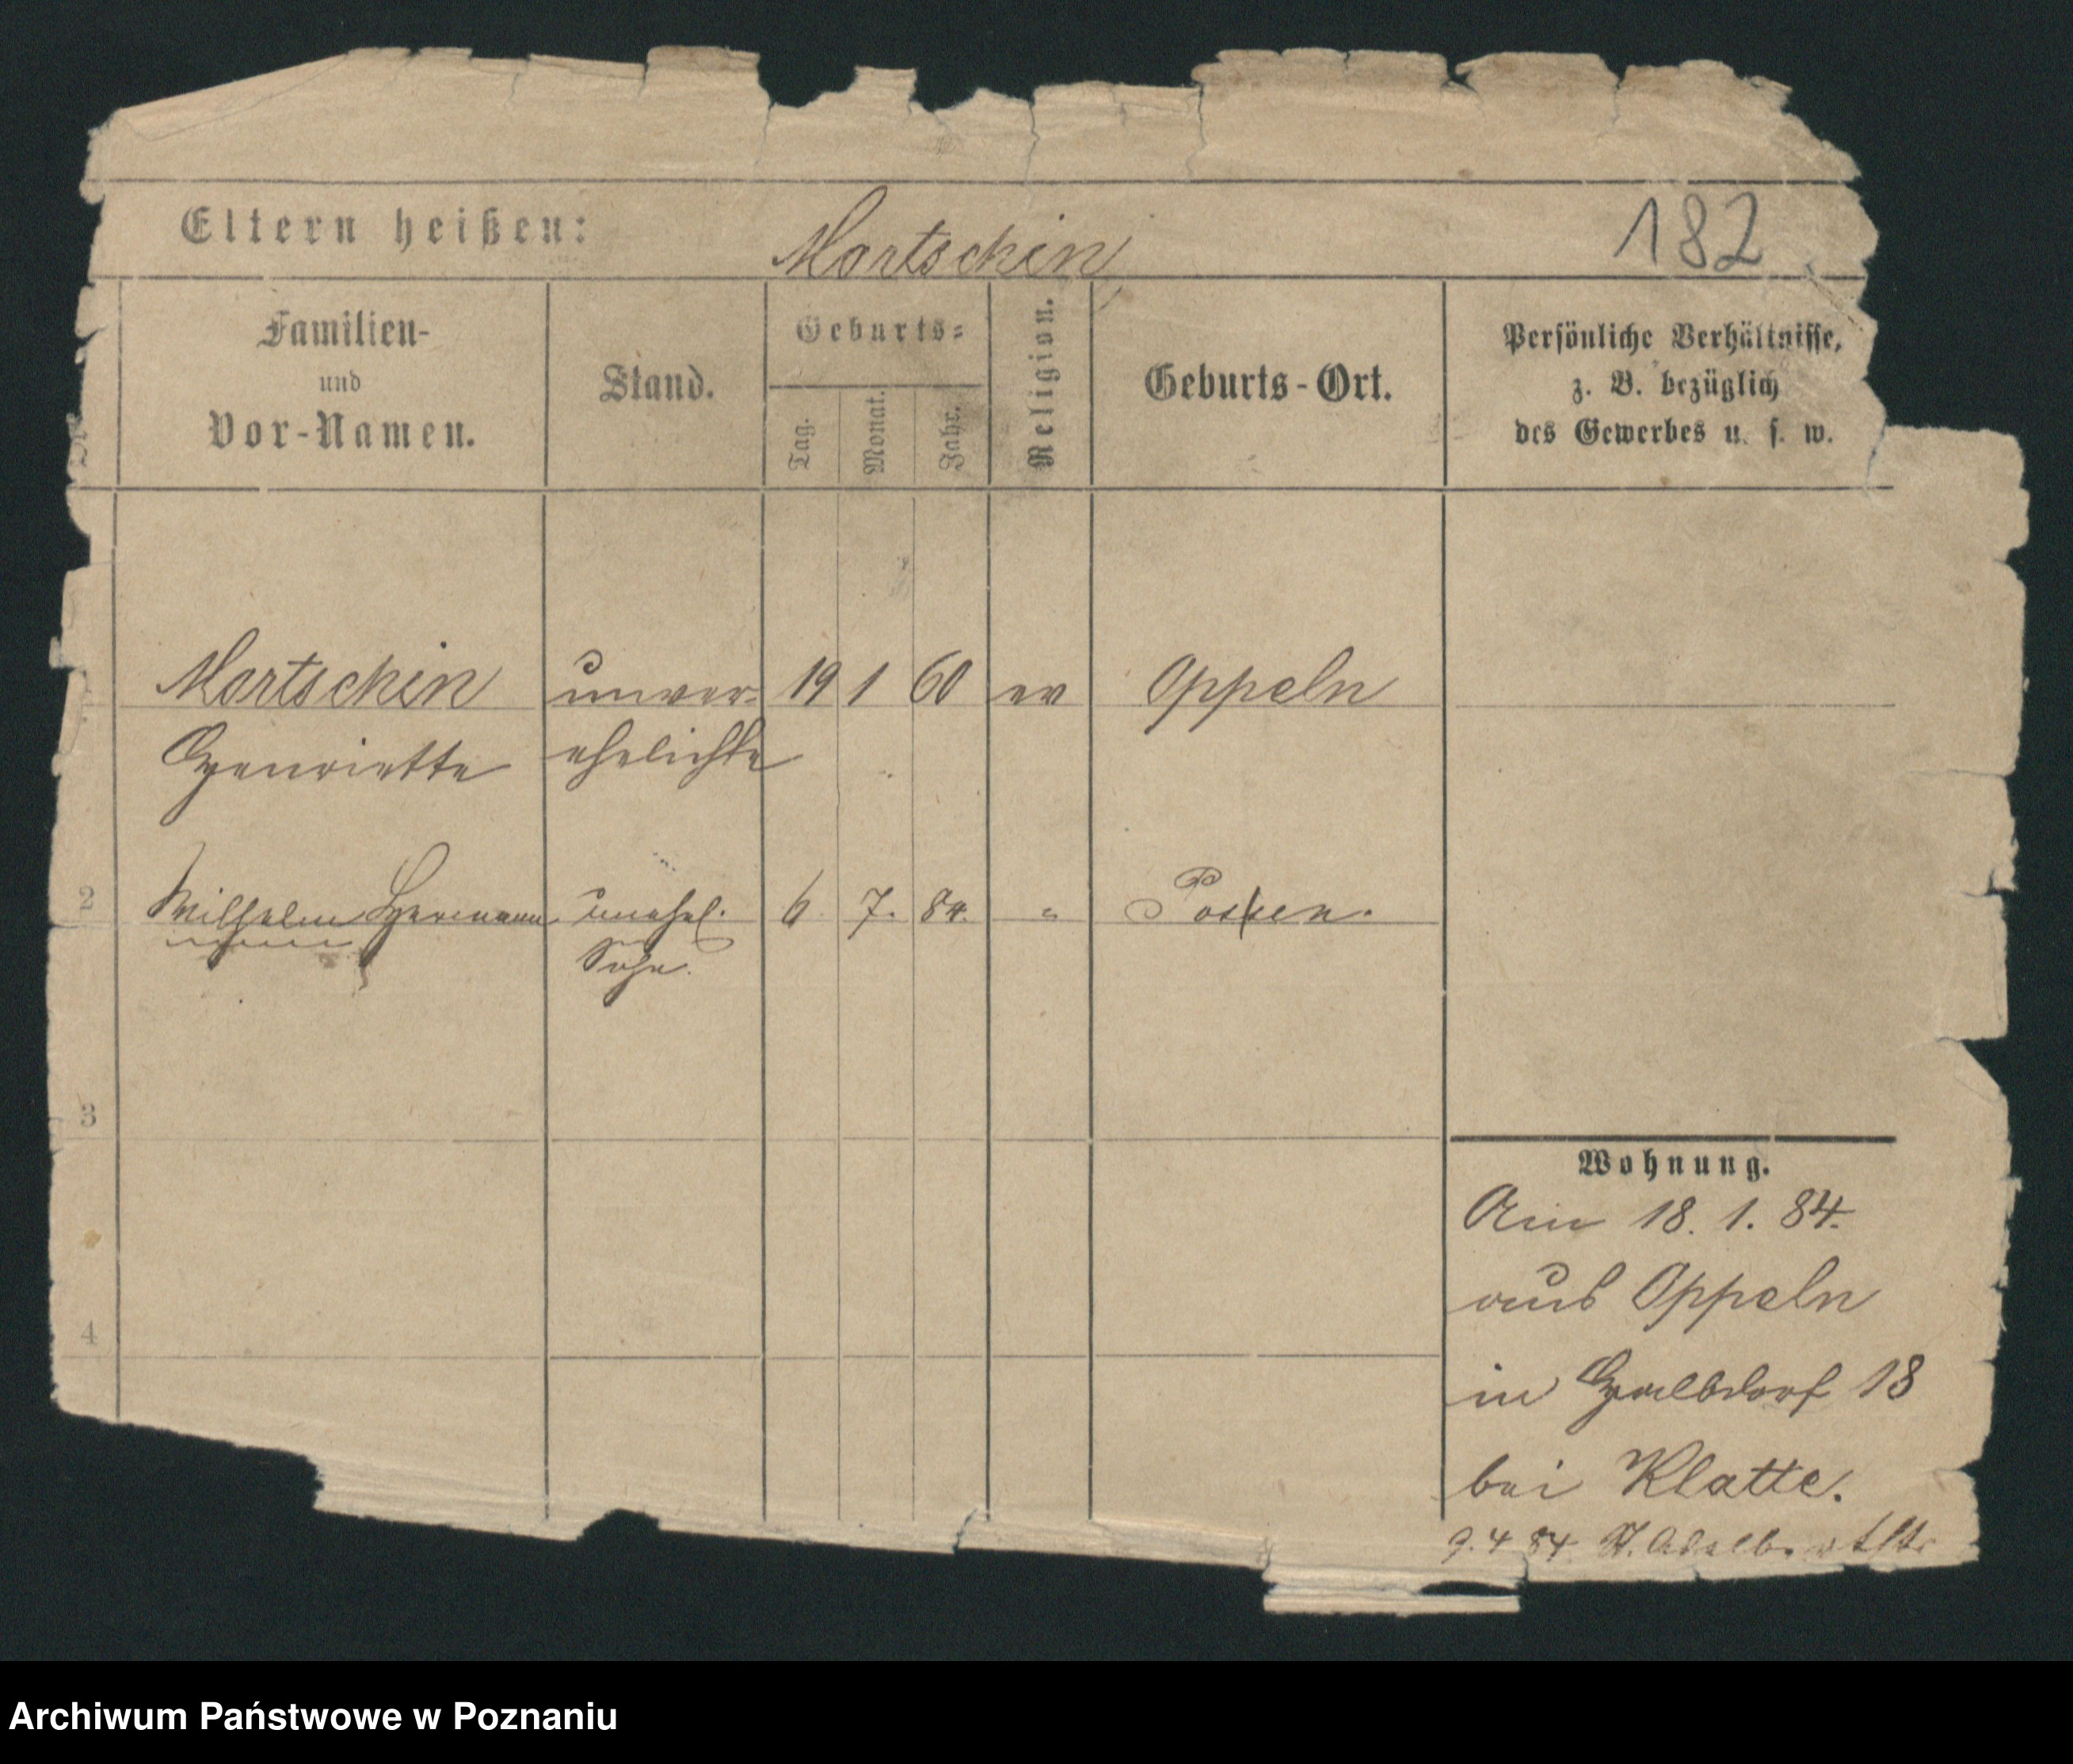 Eltern heißen: Martschin 182
Familien-
und
Vor-Namen.
Stand.
Geburts-
Tag. Monat. Jahr.
Religion.
Geburts-Ort.
Persönliche Verhältnisse,
z. B. bezüglich
des Gewerbes u. s. w.
Martschin unver- 19 1 60 ev Oppeln
Henriette ehelichte
2 Wilhelm Hermann unehel. 6. 7. 84. " Posen.
Sohn.
3
4
Wohnung.
Am 18. 1. 84.
aus Oppeln
in Halbdorf 18
bei Klatte.
9. 4 84 St. Adalbertstr
Archiwum Państwowe w Poznaniu